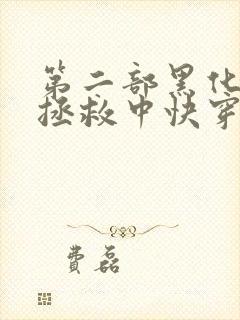 第二部黑化
拯救中快穿
费磊